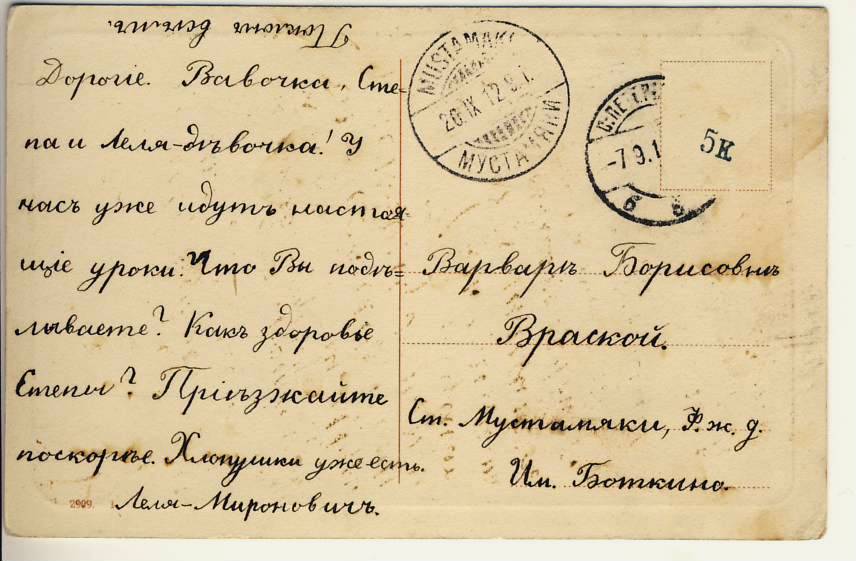 Поклонъ всѣмъ.
Дорогіе. Вавочка, Сте-
па и Леля-дѣвочка! У
насъ уже идутъ настоя-
щіе уроки. Что Вы подѣ=
лываете? Какъ здоровье
Степы? Пріѣзжайте
поскорѣе. Хлопушки уже есть.
Леля-Мироновичъ.
2909.
MUSTAMÄKI
26.IX.12.9.I.
МУСТАМЯКИ
С.ПЕТЕРБ
-7.9.1
б б
5к
Варварѣ Борисовнѣ
Враской.
Ст. Мустамяки, Ф. ж. д.
Им. Боткина.